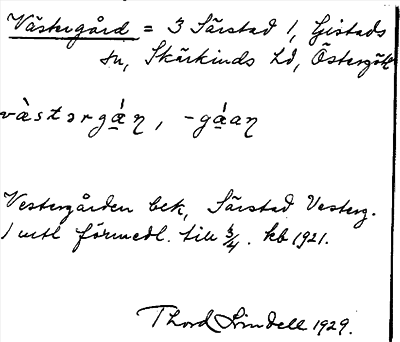 Västergård = 3 Särstad 1, Gistads
sn, Skärkinds hd, Östergötl
væ̀stərgá̱ŋ, -gá̱aŋ
Vestergården bek, Särstad Vesterg.
1 mtl förmedl. till 3/4. kb 1921.
Thord Lindell 1929.